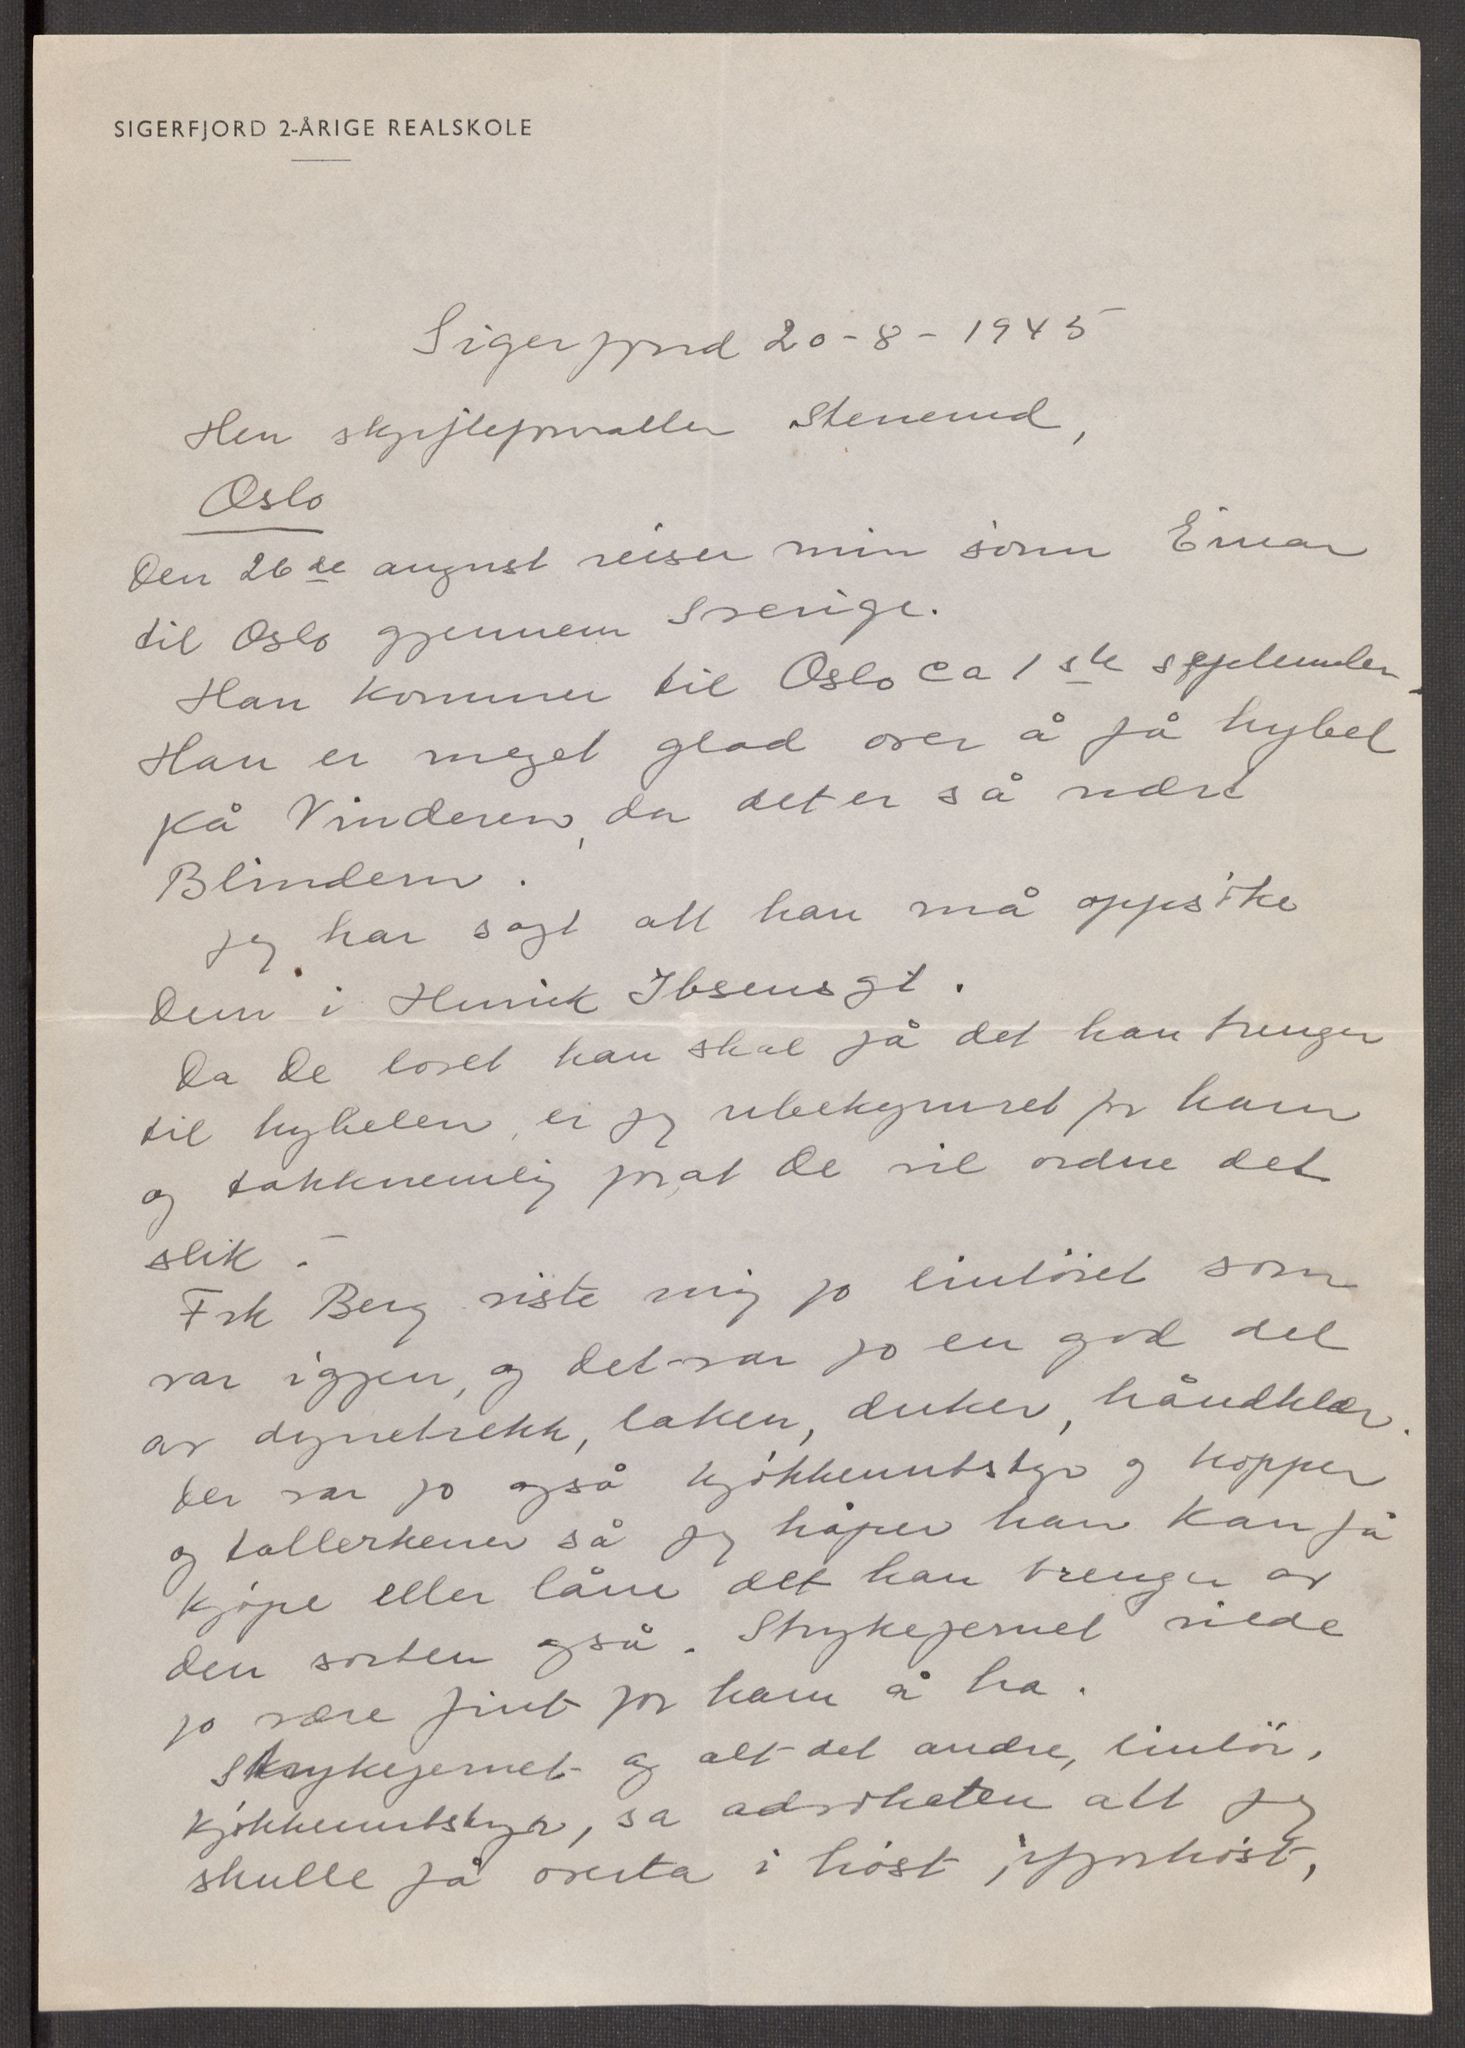 SIGERFJORD 2-ÅRIGE REALSKOLE
Sigerfjord 20-8-1945
Herr skifteforvalter Stenerud,
Oslo
Den 26de august reiser min sönn Einar
til Oslo gjennem Sverige.
Han kommer til Oslo ca 1ste september.
Han er meget glad over å få hybel
på Vinderen, da det er så nære
Blindern.
Jeg har sagt att han må oppsöke
Dem i Henrik Ibsensgt.
Da De lovet han skal få det han trenger
til hybelen, er jeg ubekymret for ham
og takknemlig for at De vil ordne det
slik.-
Frk Berg viste mig jo lintöiet som
var igjen, og det var jo en god del
av dynetrekk, laken, duker, håndklær.
Der var jo også kjökkenutstyr og kopper
og tallerkener så jeg håper han kan få
kjöpe eller låne det han trenger av
den sorten også. Strykejernet vilde
jo være fint for ham å ha.
Strykejernet og alt det andre, lintöi,
kjökkenutstyr, sa advokaten att jeg
skulle få overta i höst, ifjorhöst,